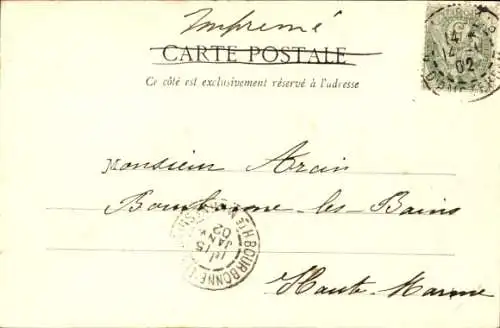 Imprimé
CARTE POSTALE
Ce côté est exclusivement réservé à l'adresse
14
02
Monsieur
Bourbonne-les-Bains
BOURBONNE
15
JANV
02
Haute-Marne